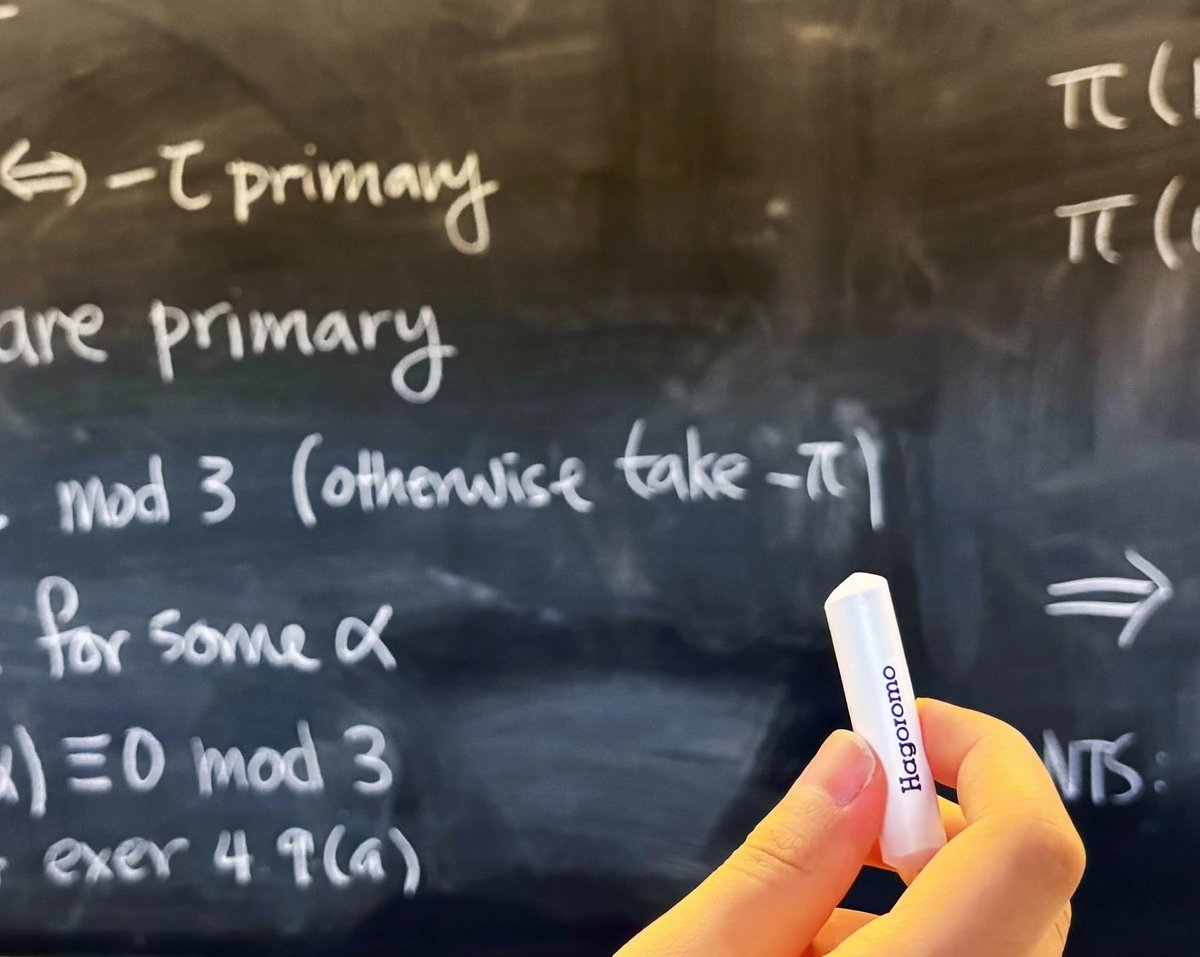 ⇔ -τ primary
are primary
mod 3 (otherwise take -π)
for some α
α) ≡ 0 mod 3
exer 4.9(a)
π(
π(
⇒
NTS:
Hagoromo